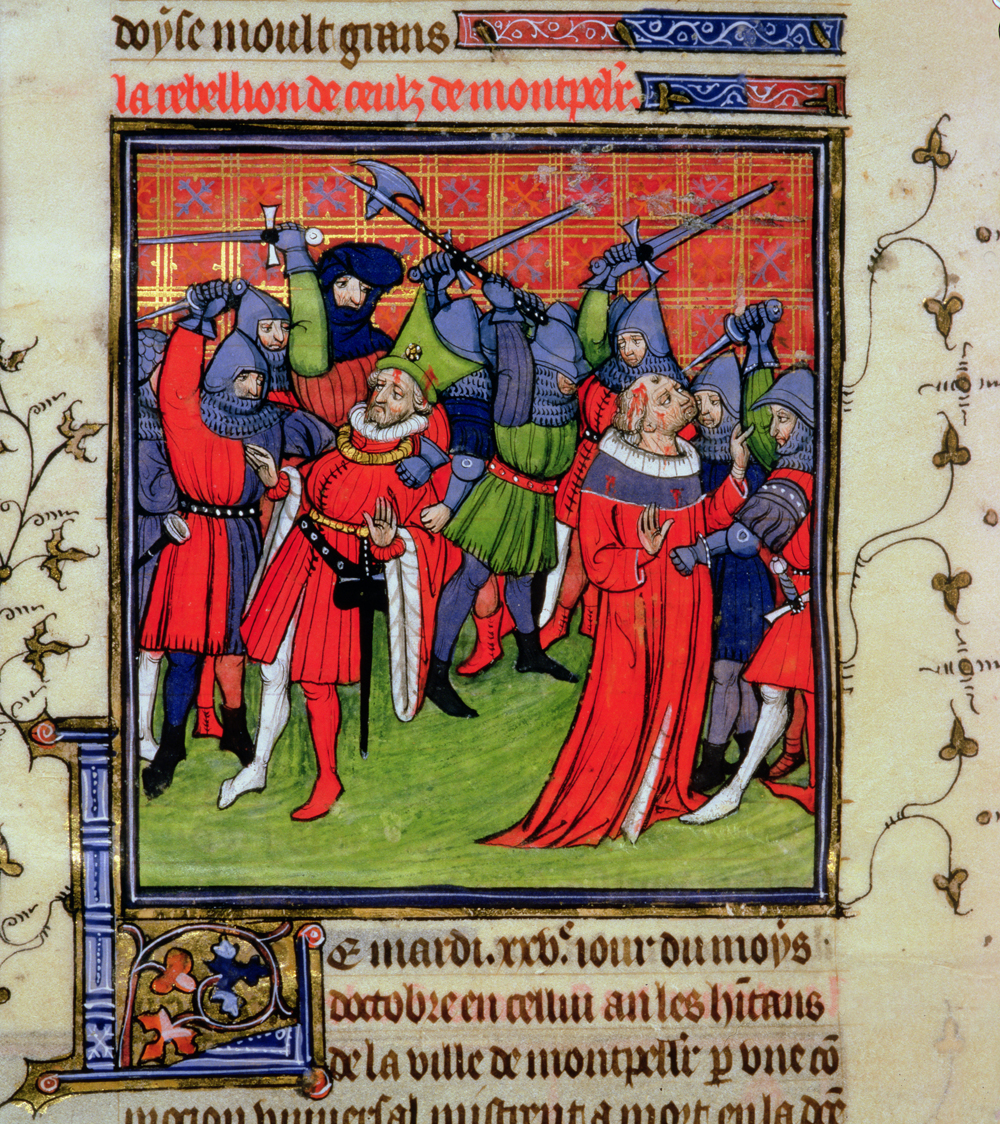 doyse moult grans
la rebellion de ceulz de montpelr̄.
Le mardi .xxv.ᵉ iour du moys
doctobre en cellui an les hītans
de la ville de montpellr̄ p vne cō
mocion vniuersal mistrent a mort en la dce